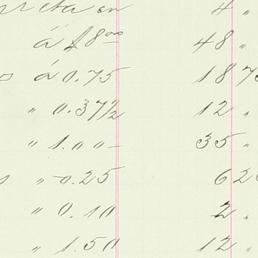 en 4 "
á 48.00 48 "
á 0.75 18 75
" 0.37 1/2 12 "
" 1.00- 35 "
" 0.25 6 25
" 0.10 2 "
" 1.50 12 "